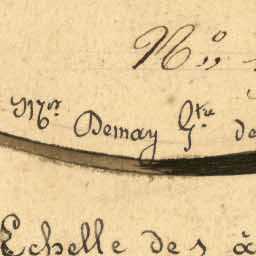 N.º
Mor Demay G.tre de
Echelle des